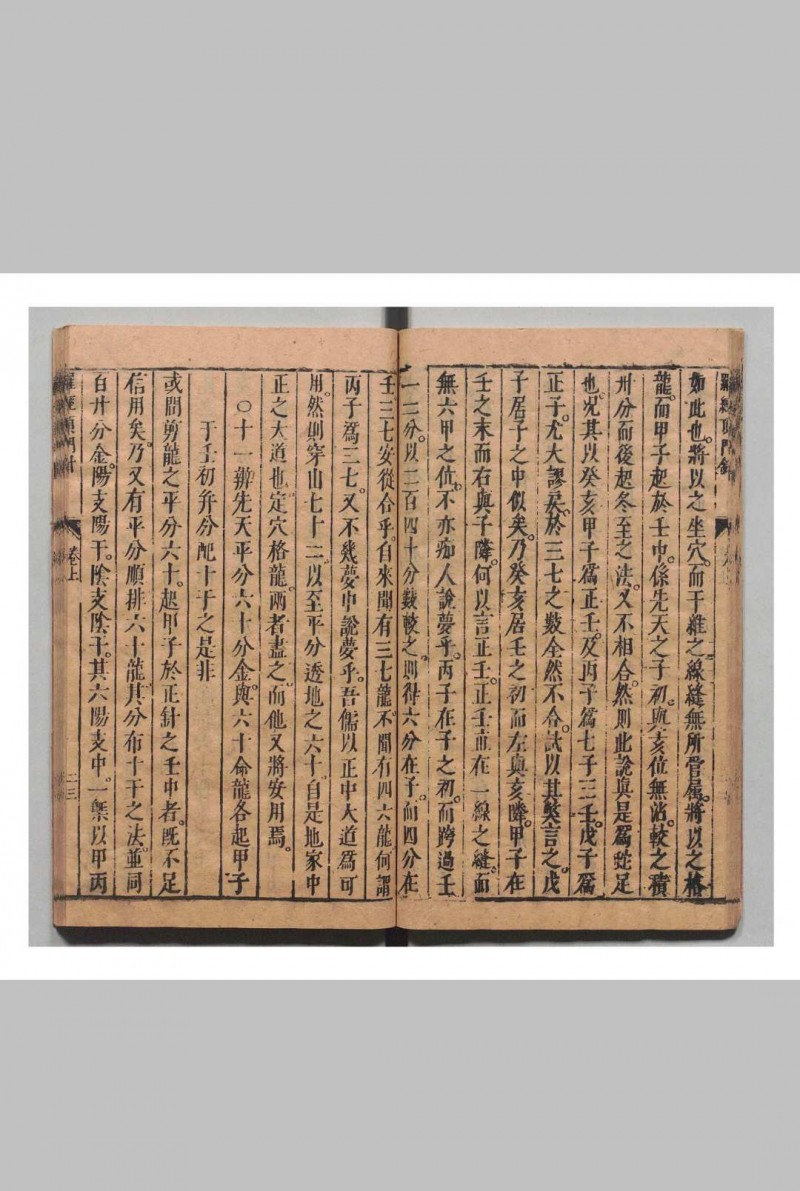 羅經頂門針
如此也將以之坐穴而干維之線縫無所管屬將以之格
龍而甲子起於壬中係先天之子初與亥位無沾較之積
卅分而後起冬至之法又不相合然則此說與是爲蛇足
也況其以癸亥甲子爲正壬及丙子爲七子三壬戊子爲
正子尤大謬矣於三七之數全然不合試以其獘言之戊
子居子之中似矣乃癸亥居壬之初而左與亥隣甲子在
壬之末而右與子隣何以言正壬正壬直在一線之縫而
無六甲之位不亦痴人說夢乎丙子在子之初而跨過壬
一二分以二百四十分數較之則得六分在子而四分在
壬三七安從合乎自來聞有三七龍不聞有四六龍何謂
丙子爲三七又不幾夢中說夢乎吾儒以正中大道爲可
用然則穿山七十二以至平分透地之六十自是地家中
正之大道也定穴格龍兩者盡之而他又將安用焉
○十一辨先天平分六十分金與六十命龍各起甲子
于壬初并分配十干之是非
或問剪龍之平分六十起甲子於正針之壬中者既不足
信用矣乃又有平分順排六十龍其分布十干之法並同
百廿分金陽支陽干陰支陰干其六陽支中一槩以甲丙
羅經頂門針
卷上
二三